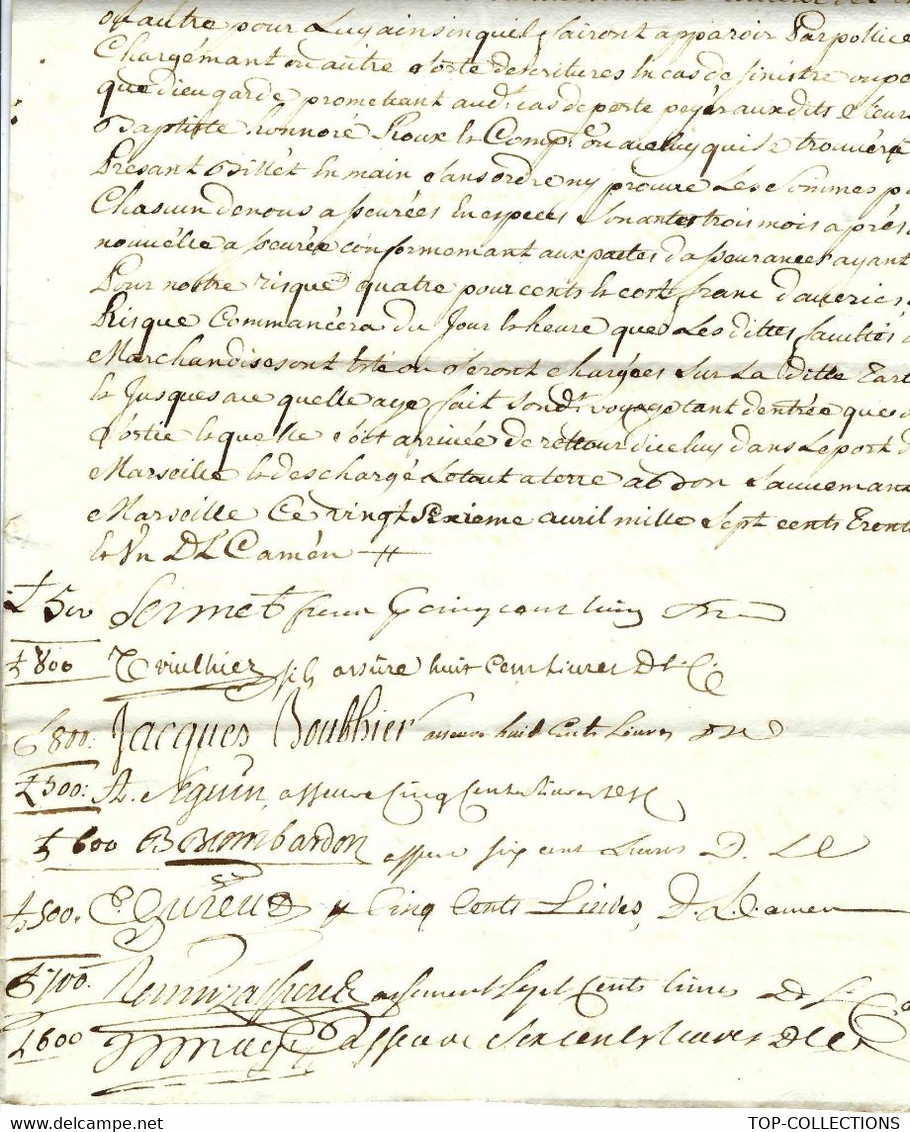 ou autre pour Luy ainsin quil fairont apparoir Par pollice
Chargémant ou autre sorte descritures En cas de sinistre ou pe
que dieu garde prometant aud.t cas de perte peyér aux dits sieur
Baptiste honnoré Roux & Comp.e ou a celuy qui se trouvéra
Présant Billét En main sans ordre ny procure Les sommes p
Chascun de nous asseurées En especes sonantes trois mois aprés
nouvélle asseurée conformemant aux pactes dasseurances ayant
Pour nostre risque quatre pour cents & cort franc daveries
Risque Commancéra Du Jour & heure que Les dittes
Marchandises ont Esté ou séront chargées sur La ditte Tart
& Jusques a ce quelle aye fait son d.t voyage tant dentrée que
sortie & quelle soit arrivée de rettour diceluy dans Le port d
Marseille & deschargé Le tout a terre a bon sauvemant
Marseille Ce vingt sixieme avril mille sept cents Trente
& Un D L C amén
₶ 500 Sermet cinq cens
₶ 800 fils assure huit Cens Livres D L C
₶ 800: Jacques Bouthier asseure huit Cents Livres
₶ 500: Seguin, asseure Cinq Cents Livres
₶ 600 Bombardon asseure six cent Livres D. L C
₶ 500. Cinq Cents Livres, D. L. C amen
₶ 700. Sept Cents livres D L C
₶ 600 asseure six cents Livres D L C
TOP-COLLECTIONS